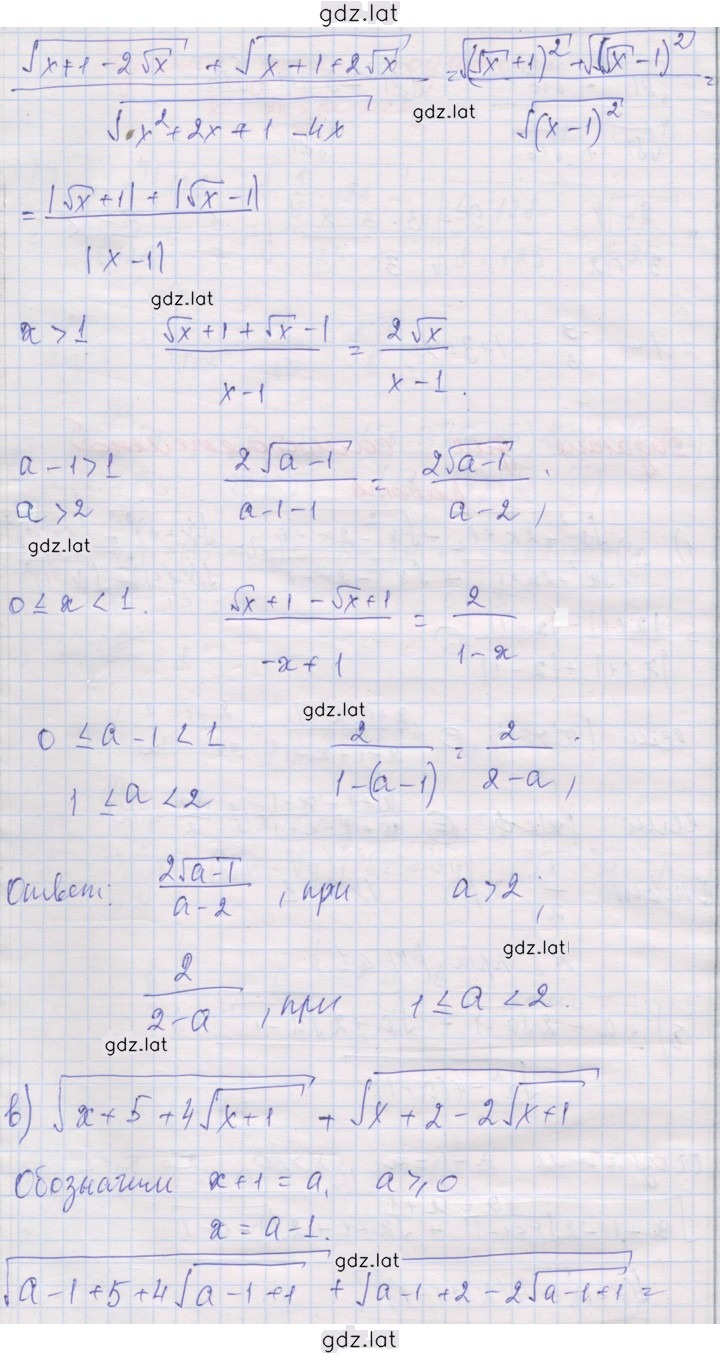 gdz.lat
√(x+1-2√x) + √(x+1+2√x) / √(x²+2x+1-4x) = √((√x+1)²) + √((√x-1)²) / √((x-1)²) =
gdz.lat
= |√x+1| + |√x-1| / |x-1|
gdz.lat
x > 1 (√x+1+√x-1) / (x-1) = 2√x / (x-1).
a-1>1 2√(a-1) / (a-1-1) = 2√(a-1) / (a-2);
a>2
gdz.lat
0 ≤ x < 1. (√x+1-√x+1) / (-x+1) = 2 / (1-x)
gdz.lat
0 ≤ a-1 < 1 2 / (1-(a-1)) = 2 / (2-a);
1 ≤ a < 2
Ответ: 2√(a-1) / (a-2), при a>2;
gdz.lat
2 / (2-a), при 1 ≤ a < 2.
gdz.lat
в) √(x+5+4√(x+1)) + √(x+2-2√(x+1))
Обозначим x+1 = a, a ≥ 0
x = a-1.
gdz.lat
√(a-1+5+4√(a-1+1)) + √(a-1+2-2√(a-1+1)) =
gdz.lat